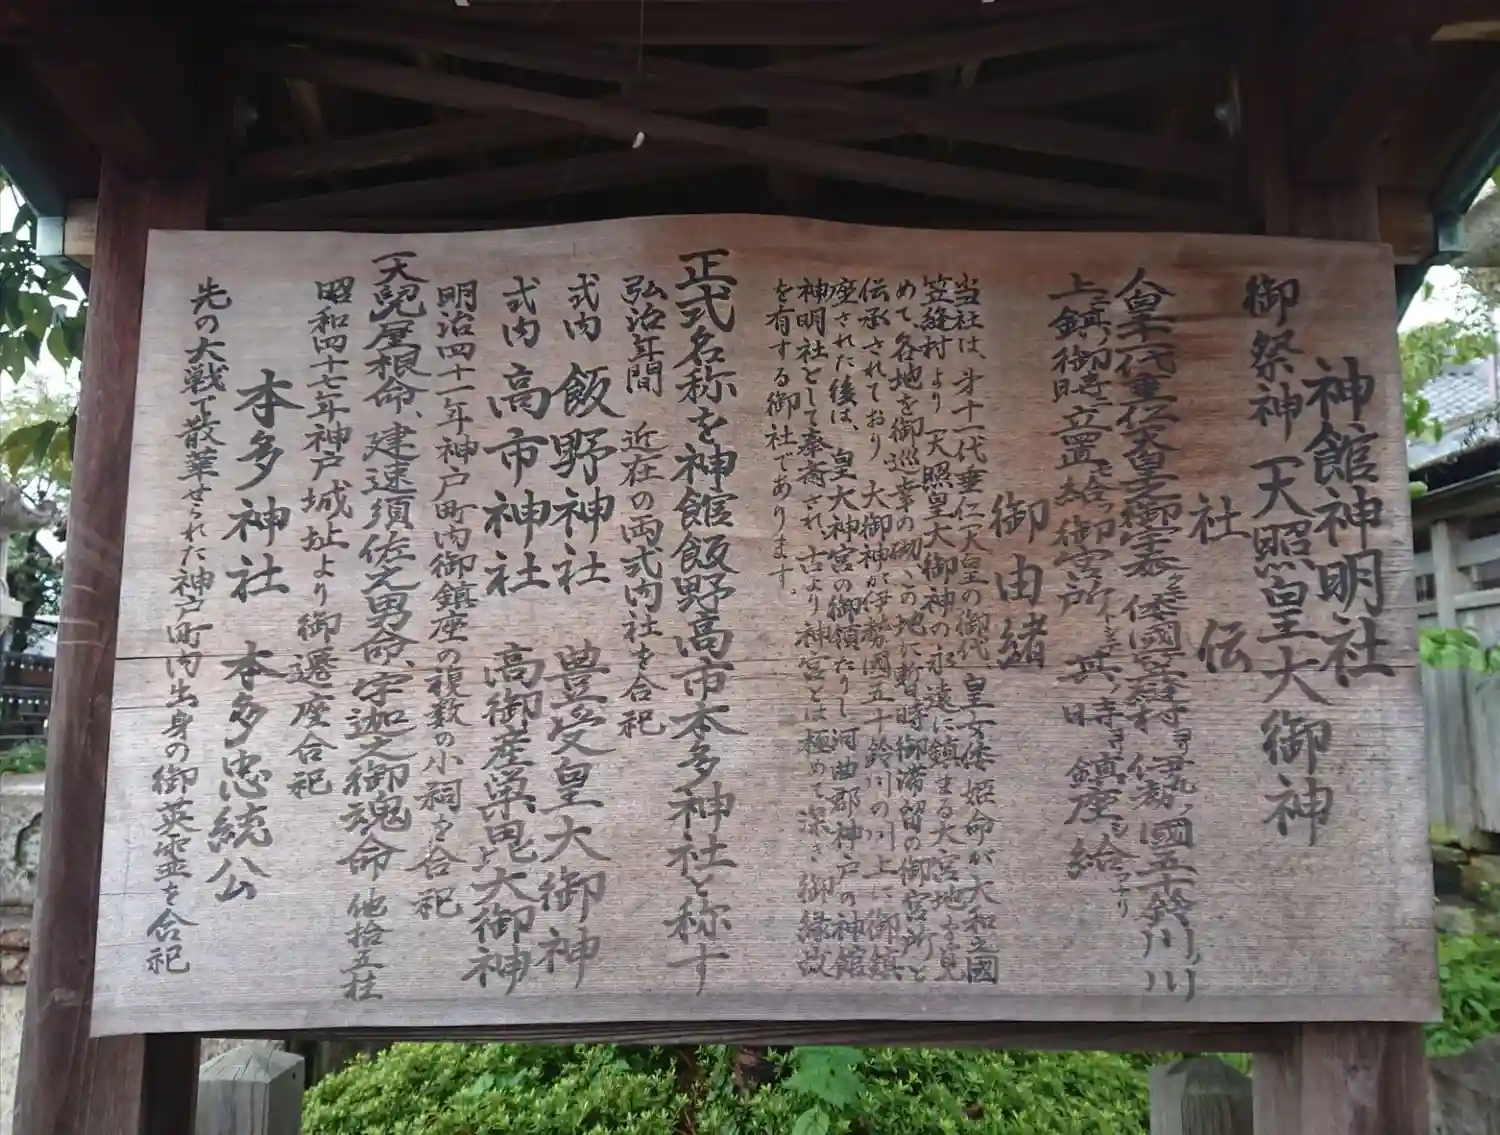 神館神明社
御祭神 天照皇大御神
社伝
人皇十一代垂仁天皇之御宇 倭國笠縫村ヨリ 伊勢國五十鈴川ノ川
上ニ鎮御時ニ立置給御宮所 其ノ時 鎮座給
御由緒
当社は、才十一代垂仁天皇の御代、皇女倭姫命が大和之國
笠縫村より「天照皇大御神の永遠に鎮まる大宮地を見
めて各地を御巡幸の砌、この地に暫時御滞留の御宮所と
伝承されており、大御神が伊勢國五十鈴川の川上に御鎮
座された後は、皇大神宮の御領たりし河曲郡神戸の神館
神明社として奉斎され、古より神宮とは極めて深き御縁故
を有する御社であります。
正式名称を神館飯野高市本多神社と称す
弘治年間 近在の両式内社を合祀
式内 飯野神社 豊受皇大御神
式内 高市神社 高御産巣毘大御神
明治四十一年神戸町内御鎮座の複数の小祠を合祀
天児屋根命、建速須佐之男命、宇迦之御魂命 他拾五柱
昭和四十七年神戸城址より御遷座合祀
本多神社 本多忠統公
先の大戦で散華せられた神戸町内出身の御英霊を合祀